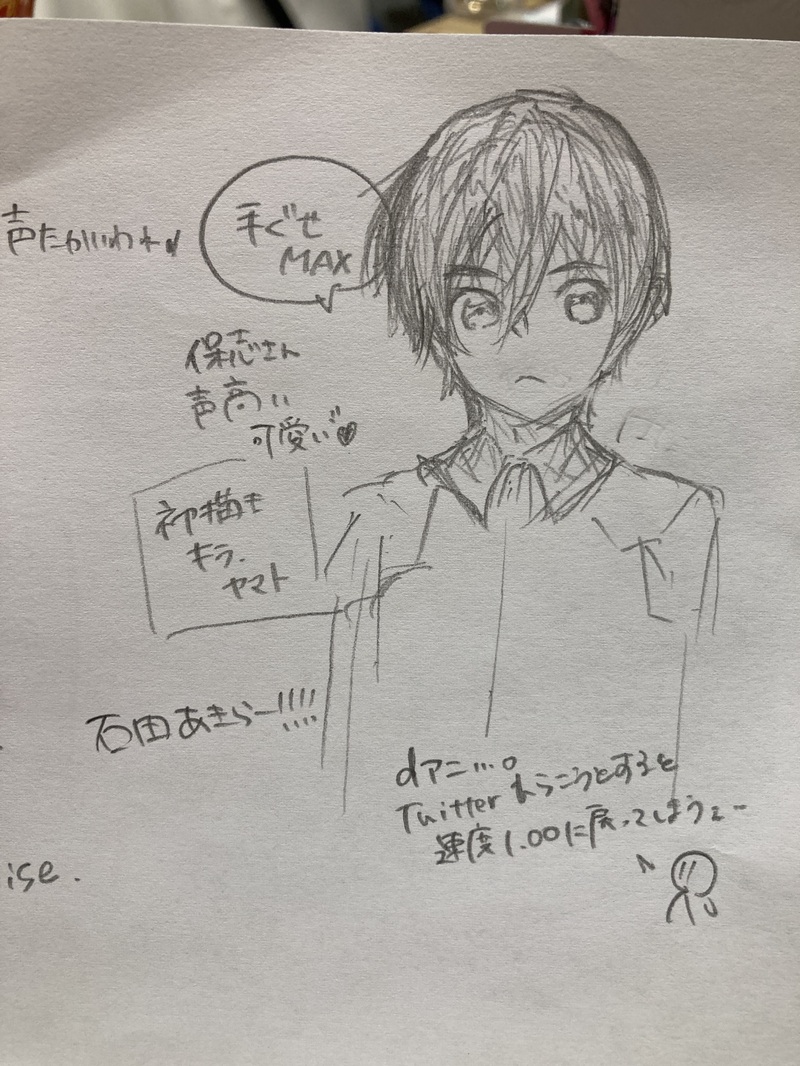 声たかいわね
手ぐせ
MAX
保志さん
声高い
可愛い♥
初描き
キラ・
ヤマト
石田あきらー!!!!
dアニ…。
Twitterひらこうとすると
速度1.00に戻ってしまうェー
ise.